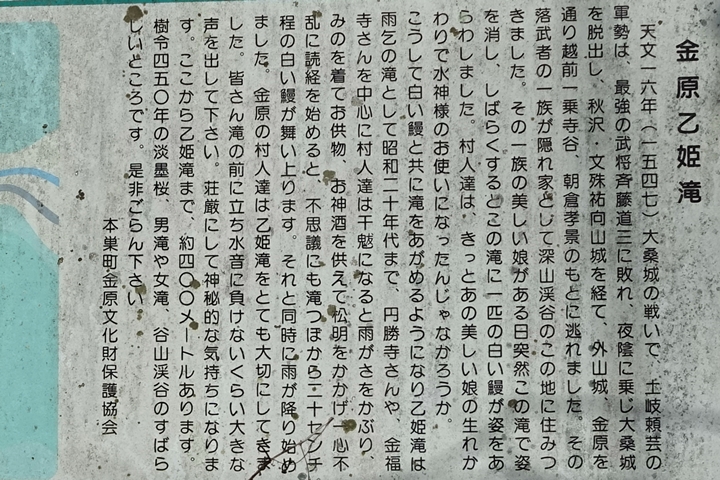 金原乙姫滝
天文一六年（一五四七）大桑城の戦いで、土岐頼芸の
軍勢は、最強の武将斉藤道三に敗れ、夜陰に乗じ大桑城
を脱出し、秋沢・文殊祐向山城を経て、外山城、金原を
通り越前一乗寺谷、朝倉孝景のもとに逃れました。その
落武者の一族が隠れ家として深山渓谷のこの地に住みつ
きました。その一族の美しい娘がある日突然この滝で姿
を消し、しばらくするとこの滝に一匹の白い鰻が姿をあ
らわしました。村人達は、きっとあの美しい娘の生れか
わりで水神様のお使いになったんじゃなかろうか。
こうして白い鰻と共に滝をあがめるようになり乙姫滝は
雨乞の滝として昭和二十年代まで、円勝寺さんや、金福
寺さんを中心に村人達は干魃になると雨がさをかぶり、
みのを着てお供物、お神酒を供えて松明をかかげ一心不
乱に読経を始めると、不思議にも滝つぼから二十センチ
程の白い鰻が舞い上ります。それと同時に雨が降り始め
ました。金原の村人達は乙姫滝をとても大切にしてきま
した。皆さん滝の前に立ち水音に負けないくらい大きな
声を出して下さい。荘厳にして神秘的な気持ちになりま
す。ここから乙姫滝まで、約四〇〇メートルあります。
樹令四五〇年の淡墨桜、男滝や女滝、谷山渓谷のすばら
しいところです。是非ごらん下さい。
本巣町金原文化財保護協会